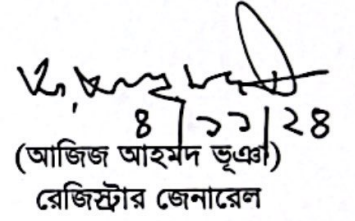 ৪/১১/২৪
(আজিজ আহমদ ভূঞা)
রেজিস্ট্রার জেনারেল